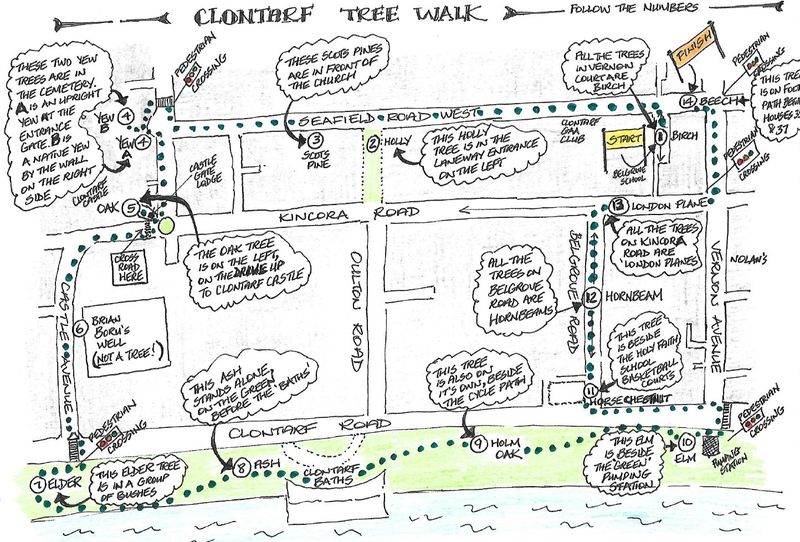 CLONTARF TREE WALK
FOLLOW THE NUMBERS
THESE TWO YEW
TREES ARE IN
THE CEMETERY.
A IS AN UPRIGHT
YEW AT THE
ENTRANCE
GATE. B IS
A NATIVE YEW
BY THE WALL
ON THE RIGHT
SIDE
PEDESTRIAN
CROSSING
YEW
B
4
YEW 4
A
THESE SCOTS PINES
ARE IN FRONT OF
THE CHURCH
SEAFIELD ROAD WEST
3
SCOTS
PINE
2 HOLLY
THIS HOLLY
TREE IS IN THE
LANEWAY ENTRANCE
ON THE LEFT
ALL THE TREES
IN VERNON
COURT ARE
BIRCH
CLONTARF
GAA
CLUB
START
BELGROVE
SCHOOL
1 BIRCH
FINISH
14 BEECH
PEDESTRIAN
CROSSING
THIS TREE
IS ON FOOT
PATH
HOUSES
& 37
PEDESTRIAN
CROSSING
CASTLE
GATE
LODGE
CLONTARF
CASTLE
OAK 5
KINCORA ROAD
13 LONDON PLANE
ALL THE TREES
ON KINCORA
ROAD ARE
LONDON PLANES
CROSS
ROAD
HERE
THE OAK TREE
IS ON THE LEFT,
ON THE DRIVE UP
TO CLONTARF CASTLE
OULTON
ROAD
ALL THE
TREES ON
BELGROVE
ROAD ARE
HORNBEAMS
BELGROVE ROAD
12 HORNBEAM
VERNON AVENUE
NOLAN'S
CASTLE AVENUE
6 BRIAN
BORU'S
WELL
(NOT A TREE!)
THIS TREE
IS BESIDE
THE HOLY FAITH
SCHOOL
BASKETBALL
COURTS
11
HORSE CHESTNUT
THIS ASH
STANDS ALONE,
ON THE GREEN
BEFORE THE BATHS
THIS TREE
IS ALSO ON
IT'S OWN, BESIDE
THE CYCLE PATH
CLONTARF ROAD
PEDESTRIAN
CROSSING
PEDESTRIAN
CROSSING
7 ELDER
THIS ELDER TREE
IS IN A GROUP
OF BUSHES
8 ASH
CLONTARF
BATHS
9 HOLM
OAK
THIS ELM
IS BESIDE
THE GREEN
PUMPING
STATION
10
ELM
PUMPING
STATION